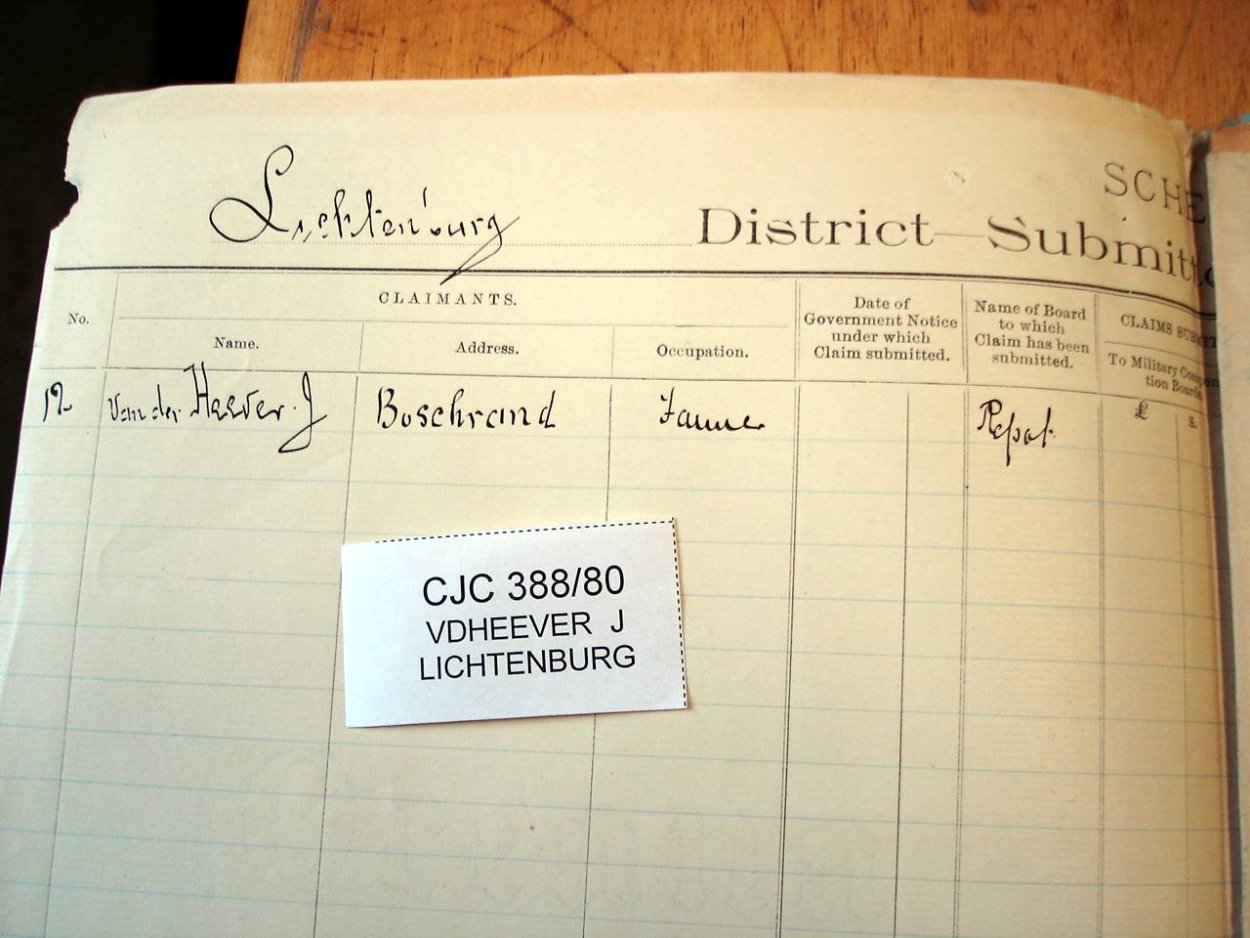 SCHE
Lichtenburg District—Submitte
No.
CLAIMANTS.
Name.
Address.
Occupation.
Date of
Government Notice
under which
Claim submitted.
Name of Board
to which
Claim has been
submitted.
CLAIMS SUBMITT
To Military Compen
tion Boards.
12 Van der Heever J Boschrand Farmer Repat. £ s.
CJC 388/80
VDHEEVER J
LICHTENBURG